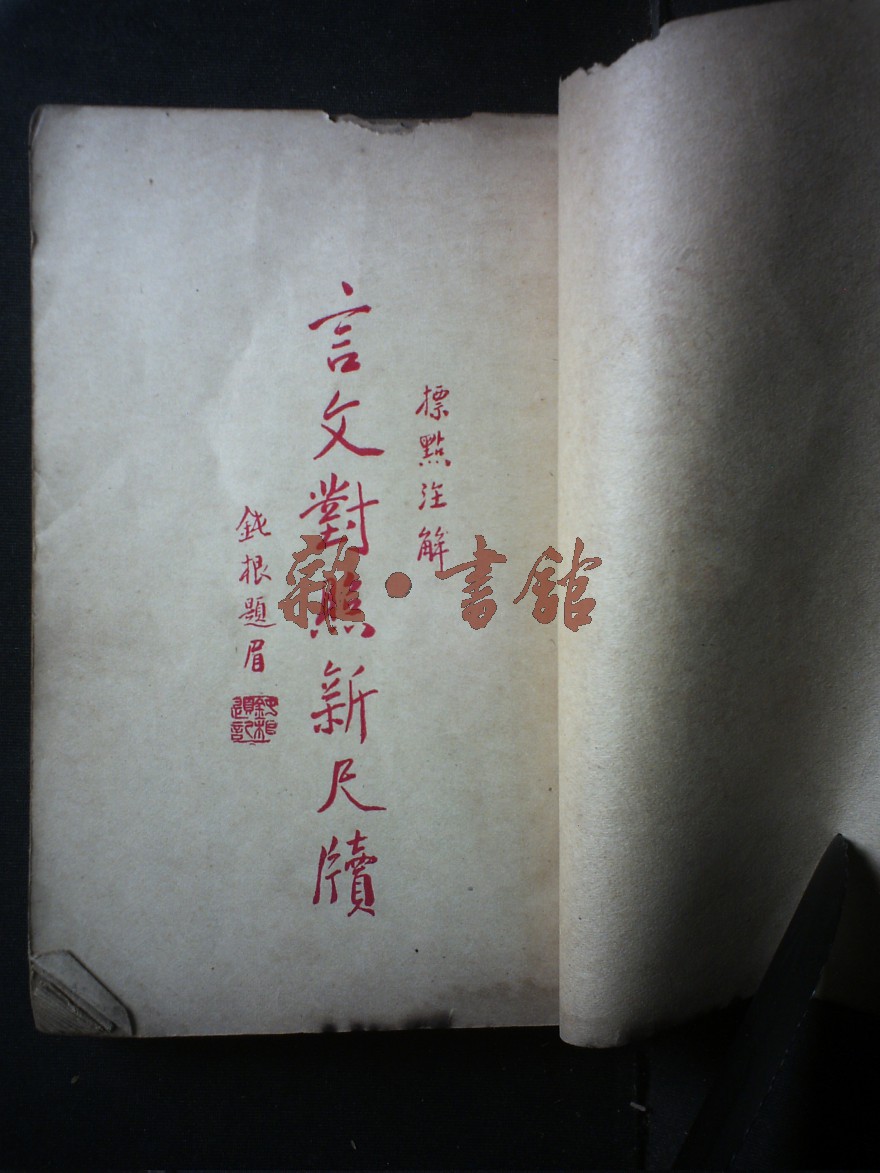 標點注解
言文對照新尺牘
鈍根題眉
雜·書館